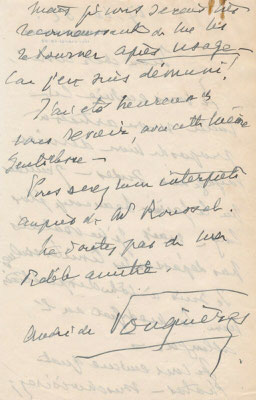 mais je vous serais très
reconnaissant de me les
retourner après usage!
Car j'en suis démuni!
J'ai été heureux de
vous revoir, avec cette même
gentillesse —
Vous serez mon interprète
auprès de Mr Roussel.
Ne doutez pas de mon
fidèle amitié.
André de Fouquières